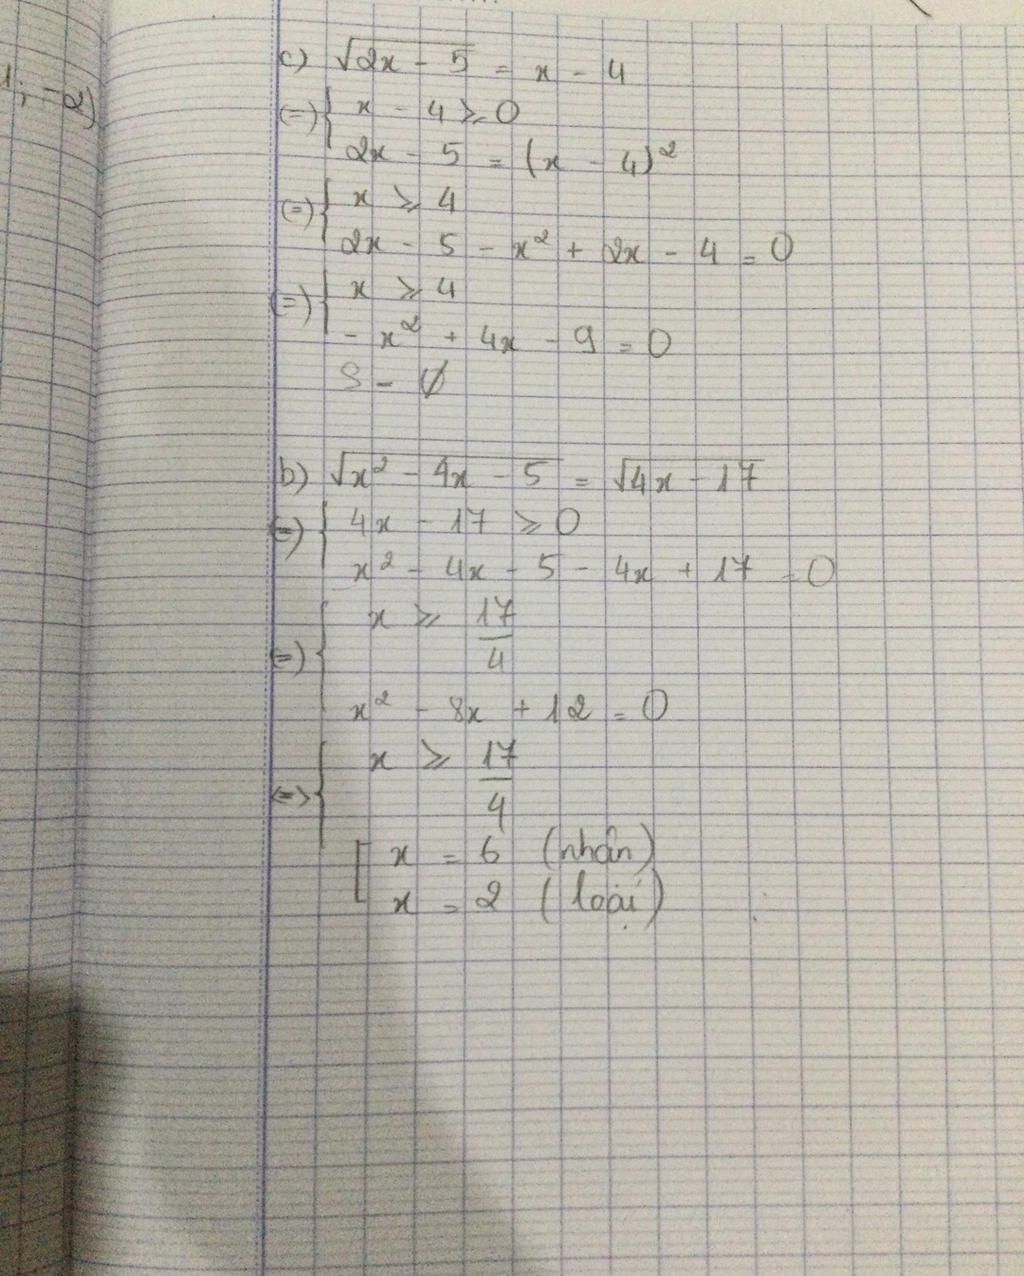 1; -2)
c) √2x - 5 = x - 4
(=) { x - 4 ⩾ 0
2x - 5 = (x - 4)²
(=) { x ⩾ 4
2x - 5 - x² + 2x - 4 = 0
(=) { x ⩾ 4
- x² + 4x - 9 = 0
S = ∅
b) √x² - 4x - 5 = √4x - 17
(=) { 4x - 17 ⩾ 0
x² - 4x - 5 - 4x + 17 = 0
(=) { x ⩾ 17/4
x² - 8x + 12 = 0
(=> { x ⩾ 17/4
[ x = 6 (nhận)
x = 2 (loại)